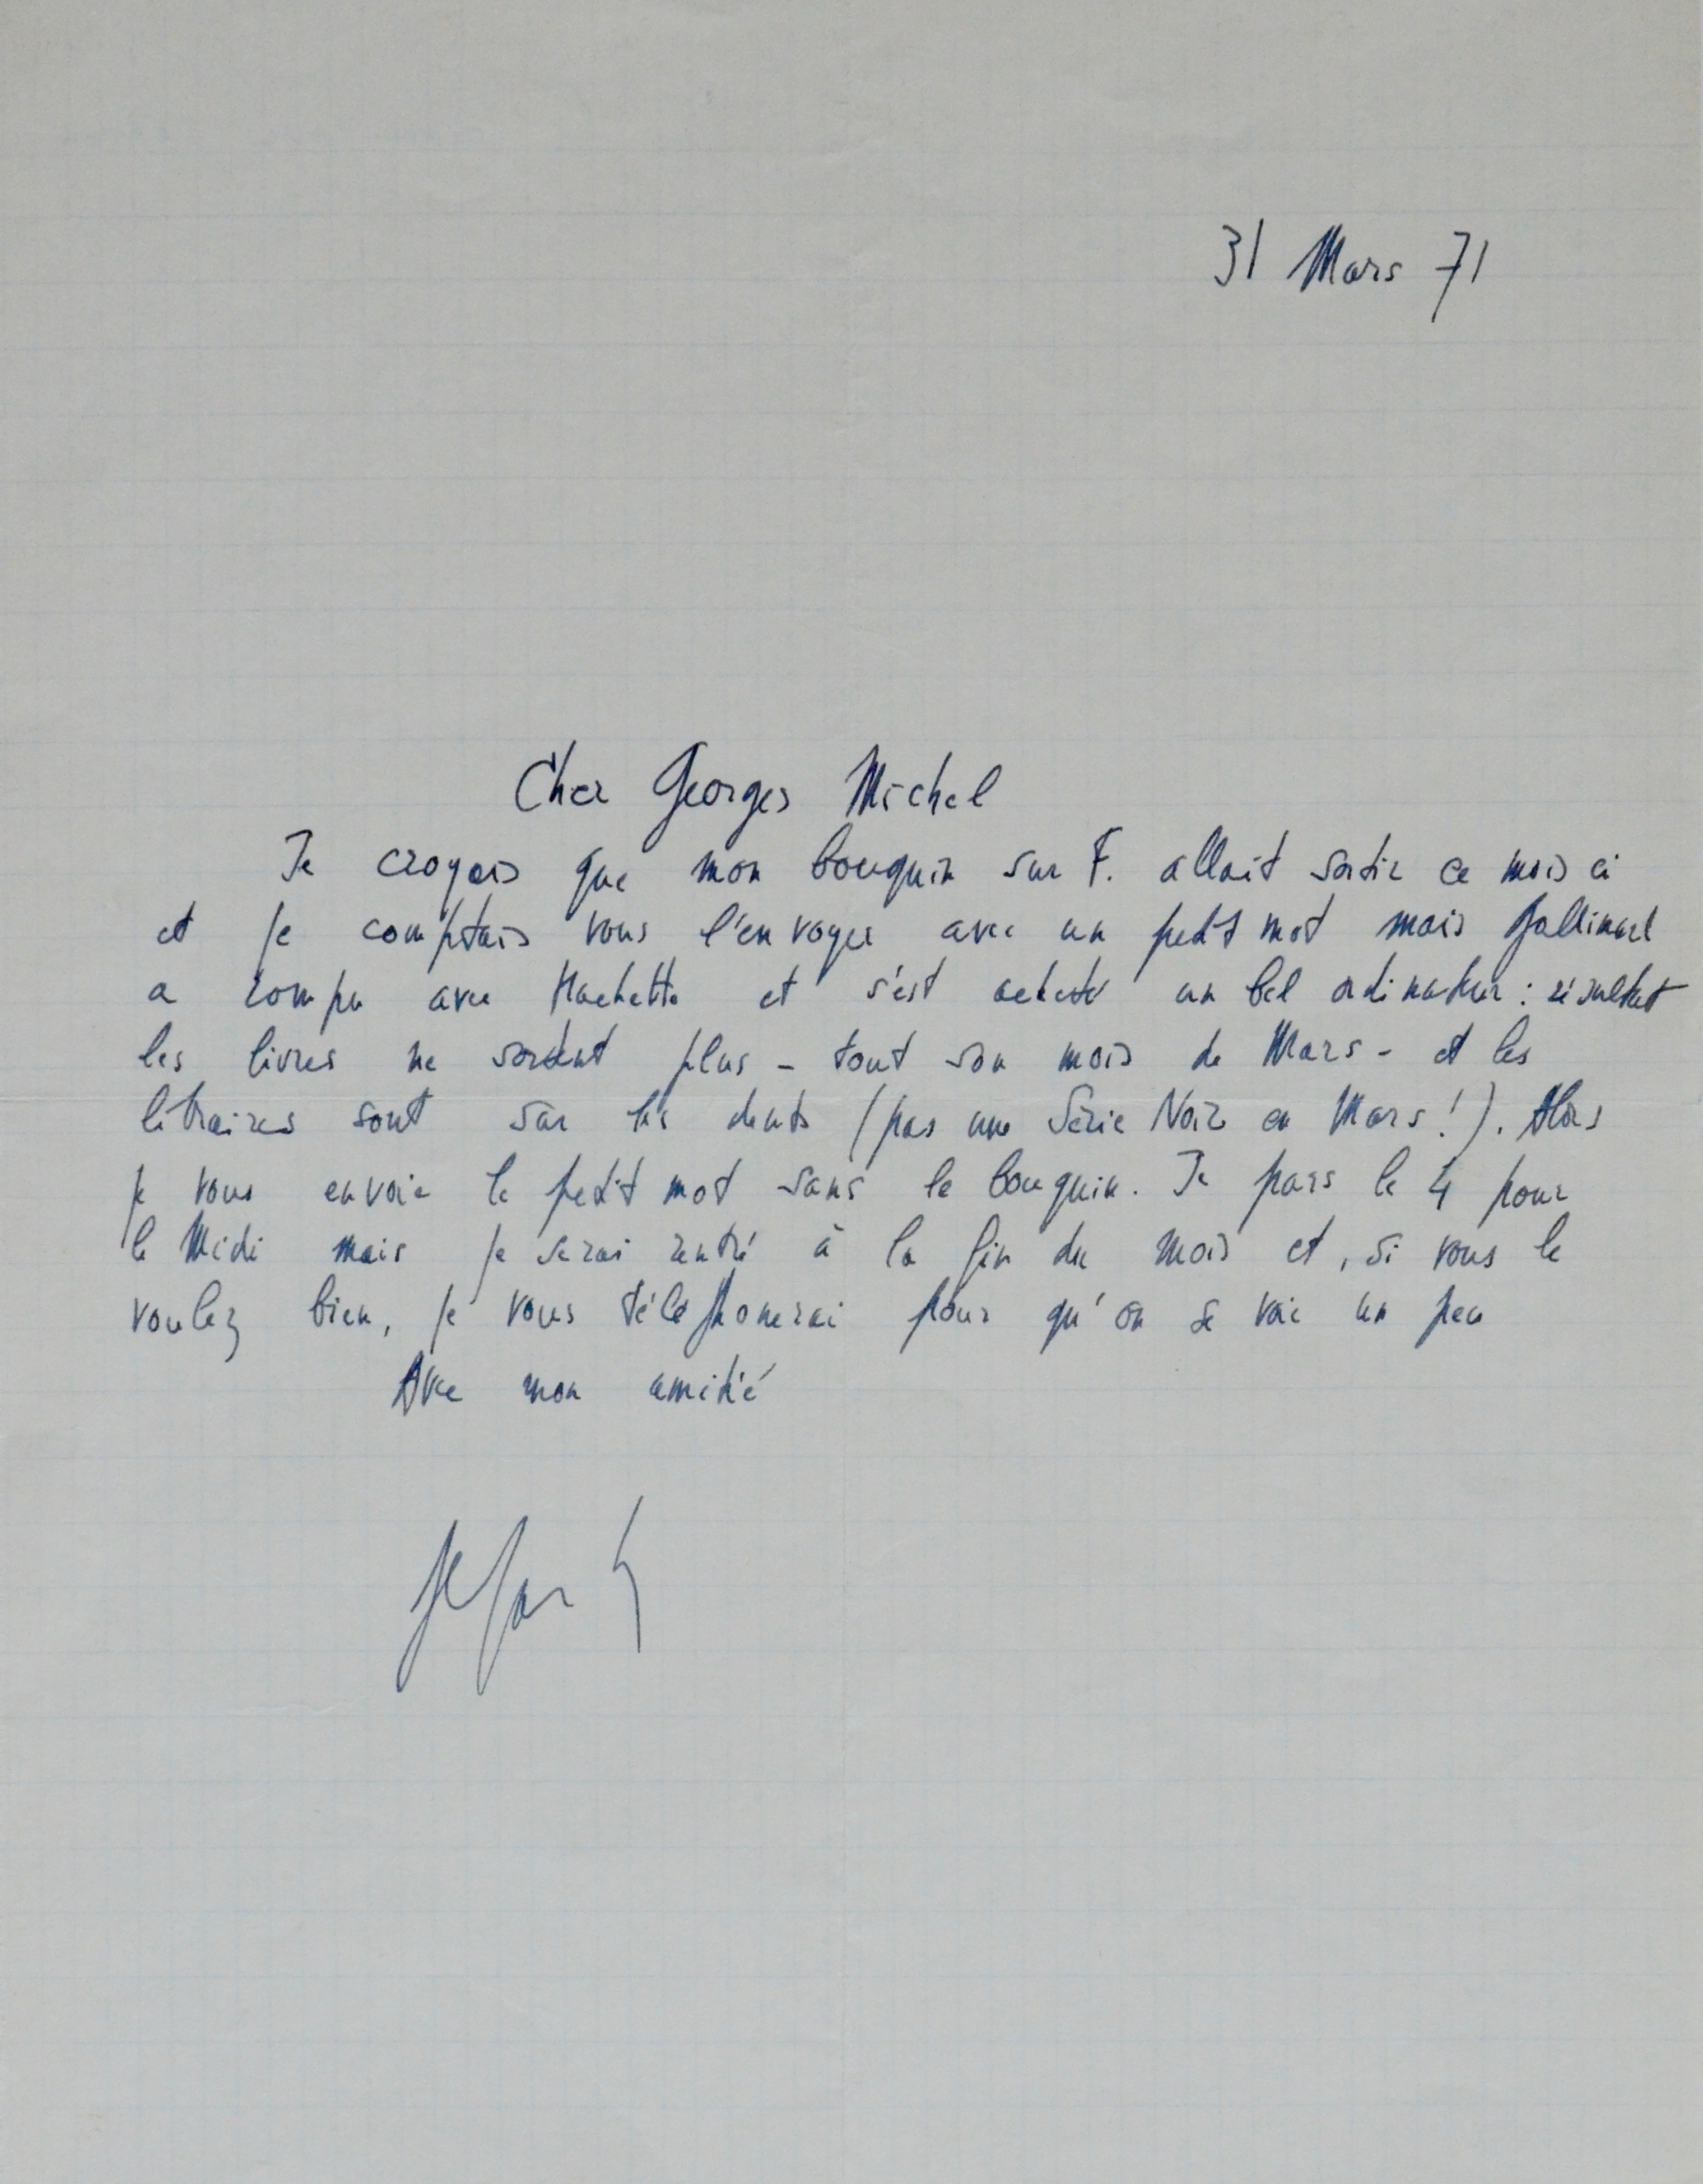 31 Mars 71
Cher Georges Michel
Je croyais que mon bouquin sur F. allait sortir ce mois ci
et je comptais vous l'envoyer avec un petit mot mais Gallimard
a rompu avec Hachette et s'est acheté un bel ordinateur : résultat
les livres ne sortent plus - tout son mois de Mars - et les
libraires sont sur les dents (pas une Série Noire en Mars !). Alors
je vous envoie le petit mot sans le bouquin. Je pars le 4 pour
le Midi mais je serai rentré à la fin du mois et, si vous le
voulez bien, je vous téléphonerai pour qu'on se voie un peu
Avec mon amitié